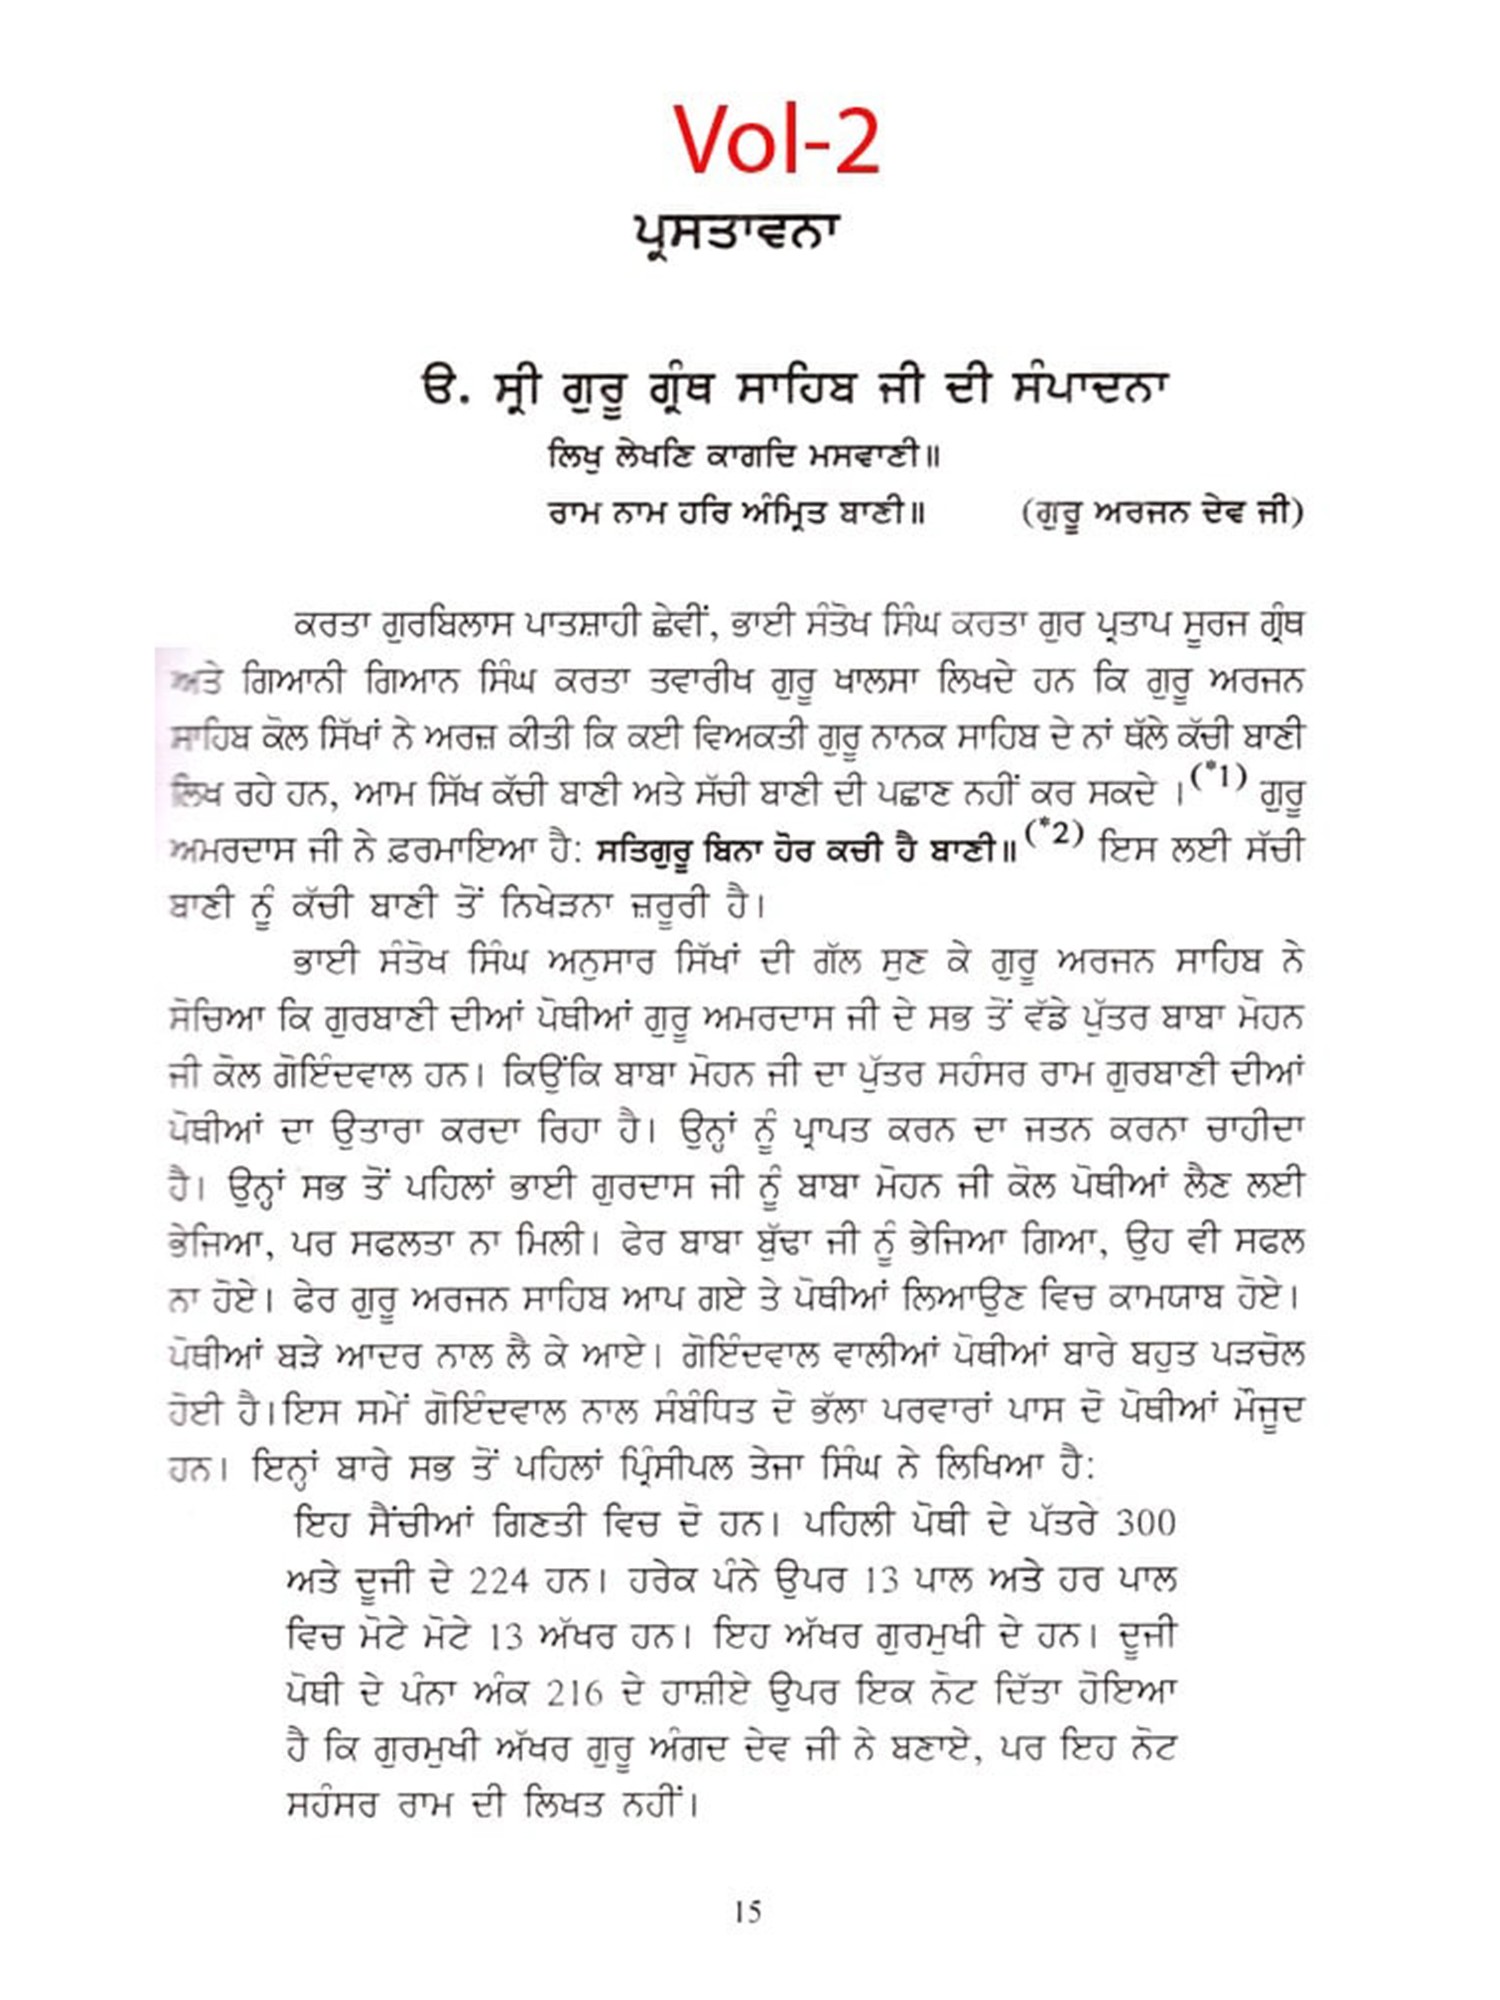 Vol-2
ਪ੍ਰਸਤਾਵਨਾ
ੳ. ਸ੍ਰੀ ਗੁਰੂ ਗ੍ਰੰਥ ਸਾਹਿਬ ਜੀ ਦੀ ਸੰਪਾਦਨਾ
ਲਿਖੁ ਲੇਖਣਿ ਕਾਗਦਿ ਮਸਵਾਣੀ॥
ਰਾਮ ਨਾਮ ਹਰਿ ਅੰਮ੍ਰਿਤ ਬਾਣੀ॥ (ਗੁਰੂ ਅਰਜਨ ਦੇਵ ਜੀ)
ਕਰਤਾ ਗੁਰਬਿਲਾਸ ਪਾਤਸ਼ਾਹੀ ਛੇਵੀਂ, ਭਾਈ ਸੰਤੋਖ ਸਿੰਘ ਕਰਤਾ ਗੁਰ ਪ੍ਰਤਾਪ ਸੂਰਜ ਗ੍ਰੰਥ
ਅਤੇ ਗਿਆਨੀ ਗਿਆਨ ਸਿੰਘ ਕਰਤਾ ਤਵਾਰੀਖ ਗੁਰੂ ਖਾਲਸਾ ਲਿਖਦੇ ਹਨ ਕਿ ਗੁਰੂ ਅਰਜਨ
ਸਾਹਿਬ ਕੋਲ ਸਿੱਖਾਂ ਨੇ ਅਰਜ਼ ਕੀਤੀ ਕਿ ਕਈ ਵਿਅਕਤੀ ਗੁਰੂ ਨਾਨਕ ਸਾਹਿਬ ਦੇ ਨਾਂ ਥੱਲੇ ਕੱਚੀ ਬਾਣੀ
ਲਿਖ ਰਹੇ ਹਨ, ਆਮ ਸਿੱਖ ਕੱਚੀ ਬਾਣੀ ਅਤੇ ਸੱਚੀ ਬਾਣੀ ਦੀ ਪਛਾਣ ਨਹੀਂ ਕਰ ਸਕਦੇ ।(*1) ਗੁਰੂ
ਅਮਰਦਾਸ ਜੀ ਨੇ ਫ਼ਰਮਾਇਆ ਹੈ: ਸਤਿਗੁਰੂ ਬਿਨਾ ਹੋਰ ਕਚੀ ਹੈ ਬਾਣੀ॥(*2) ਇਸ ਲਈ ਸੱਚੀ
ਬਾਣੀ ਨੂੰ ਕੱਚੀ ਬਾਣੀ ਤੋਂ ਨਿਖੇੜਨਾ ਜ਼ਰੂਰੀ ਹੈ।
ਭਾਈ ਸੰਤੋਖ ਸਿੰਘ ਅਨੁਸਾਰ ਸਿੱਖਾਂ ਦੀ ਗੱਲ ਸੁਣ ਕੇ ਗੁਰੂ ਅਰਜਨ ਸਾਹਿਬ ਨੇ
ਸੋਚਿਆ ਕਿ ਗੁਰਬਾਣੀ ਦੀਆਂ ਪੋਥੀਆਂ ਗੁਰੂ ਅਮਰਦਾਸ ਜੀ ਦੇ ਸਭ ਤੋਂ ਵੱਡੇ ਪੁੱਤਰ ਬਾਬਾ ਮੋਹਨ
ਜੀ ਕੋਲ ਗੋਇੰਦਵਾਲ ਹਨ। ਕਿਉਂਕਿ ਬਾਬਾ ਮੋਹਨ ਜੀ ਦਾ ਪੁੱਤਰ ਸਹੰਸਰ ਰਾਮ ਗੁਰਬਾਣੀ ਦੀਆਂ
ਪੋਥੀਆਂ ਦਾ ਉਤਾਰਾ ਕਰਦਾ ਰਿਹਾ ਹੈ। ਉਨ੍ਹਾਂ ਨੂੰ ਪ੍ਰਾਪਤ ਕਰਨ ਦਾ ਜਤਨ ਕਰਨਾ ਚਾਹੀਦਾ
ਹੈ। ਉਨ੍ਹਾਂ ਸਭ ਤੋਂ ਪਹਿਲਾਂ ਭਾਈ ਗੁਰਦਾਸ ਜੀ ਨੂੰ ਬਾਬਾ ਮੋਹਨ ਜੀ ਕੋਲ ਪੋਥੀਆਂ ਲੈਣ ਲਈ
ਭੇਜਿਆ, ਪਰ ਸਫਲਤਾ ਨਾ ਮਿਲੀ। ਫੇਰ ਬਾਬਾ ਬੁੱਢਾ ਜੀ ਨੂੰ ਭੇਜਿਆ ਗਿਆ, ਉਹ ਵੀ ਸਫਲ
ਨਾ ਹੋਏ। ਫੇਰ ਗੁਰੂ ਅਰਜਨ ਸਾਹਿਬ ਆਪ ਗਏ ਤੇ ਪੋਥੀਆਂ ਲਿਆਉਣ ਵਿਚ ਕਾਮਯਾਬ ਹੋਏ।
ਪੋਥੀਆਂ ਬੜੇ ਆਦਰ ਨਾਲ ਲੈ ਕੇ ਆਏ। ਗੋਇੰਦਵਾਲ ਵਾਲੀਆਂ ਪੋਥੀਆਂ ਬਾਰੇ ਬਹੁਤ ਪੜਚੋਲ
ਹੋਈ ਹੈ।ਇਸ ਸਮੇਂ ਗੋਇੰਦਵਾਲ ਨਾਲ ਸੰਬੰਧਿਤ ਦੋ ਭੱਲਾ ਪਰਵਾਰਾਂ ਪਾਸ ਦੋ ਪੋਥੀਆਂ ਮੌਜੂਦ
ਹਨ। ਇਨ੍ਹਾਂ ਬਾਰੇ ਸਭ ਤੋਂ ਪਹਿਲਾਂ ਪ੍ਰਿੰਸੀਪਲ ਤੇਜਾ ਸਿੰਘ ਨੇ ਲਿਖਿਆ ਹੈ:
ਇਹ ਸੈਂਚੀਆਂ ਗਿਣਤੀ ਵਿਚ ਦੋ ਹਨ। ਪਹਿਲੀ ਪੋਥੀ ਦੇ ਪੱਤਰੇ 300
ਅਤੇ ਦੂਜੀ ਦੇ 224 ਹਨ। ਹਰੇਕ ਪੰਨੇ ਉਪਰ 13 ਪਾਲ ਅਤੇ ਹਰ ਪਾਲ
ਵਿਚ ਮੋਟੇ ਮੋਟੇ 13 ਅੱਖਰ ਹਨ। ਇਹ ਅੱਖਰ ਗੁਰਮੁਖੀ ਦੇ ਹਨ। ਦੂਜੀ
ਪੋਥੀ ਦੇ ਪੰਨਾ ਅੰਕ 216 ਦੇ ਹਾਸ਼ੀਏ ਉਪਰ ਇਕ ਨੋਟ ਦਿੱਤਾ ਹੋਇਆ
ਹੈ ਕਿ ਗੁਰਮੁਖੀ ਅੱਖਰ ਗੁਰੂ ਅੰਗਦ ਦੇਵ ਜੀ ਨੇ ਬਣਾਏ, ਪਰ ਇਹ ਨੋਟ
ਸਹੰਸਰ ਰਾਮ ਦੀ ਲਿਖਤ ਨਹੀਂ।
15